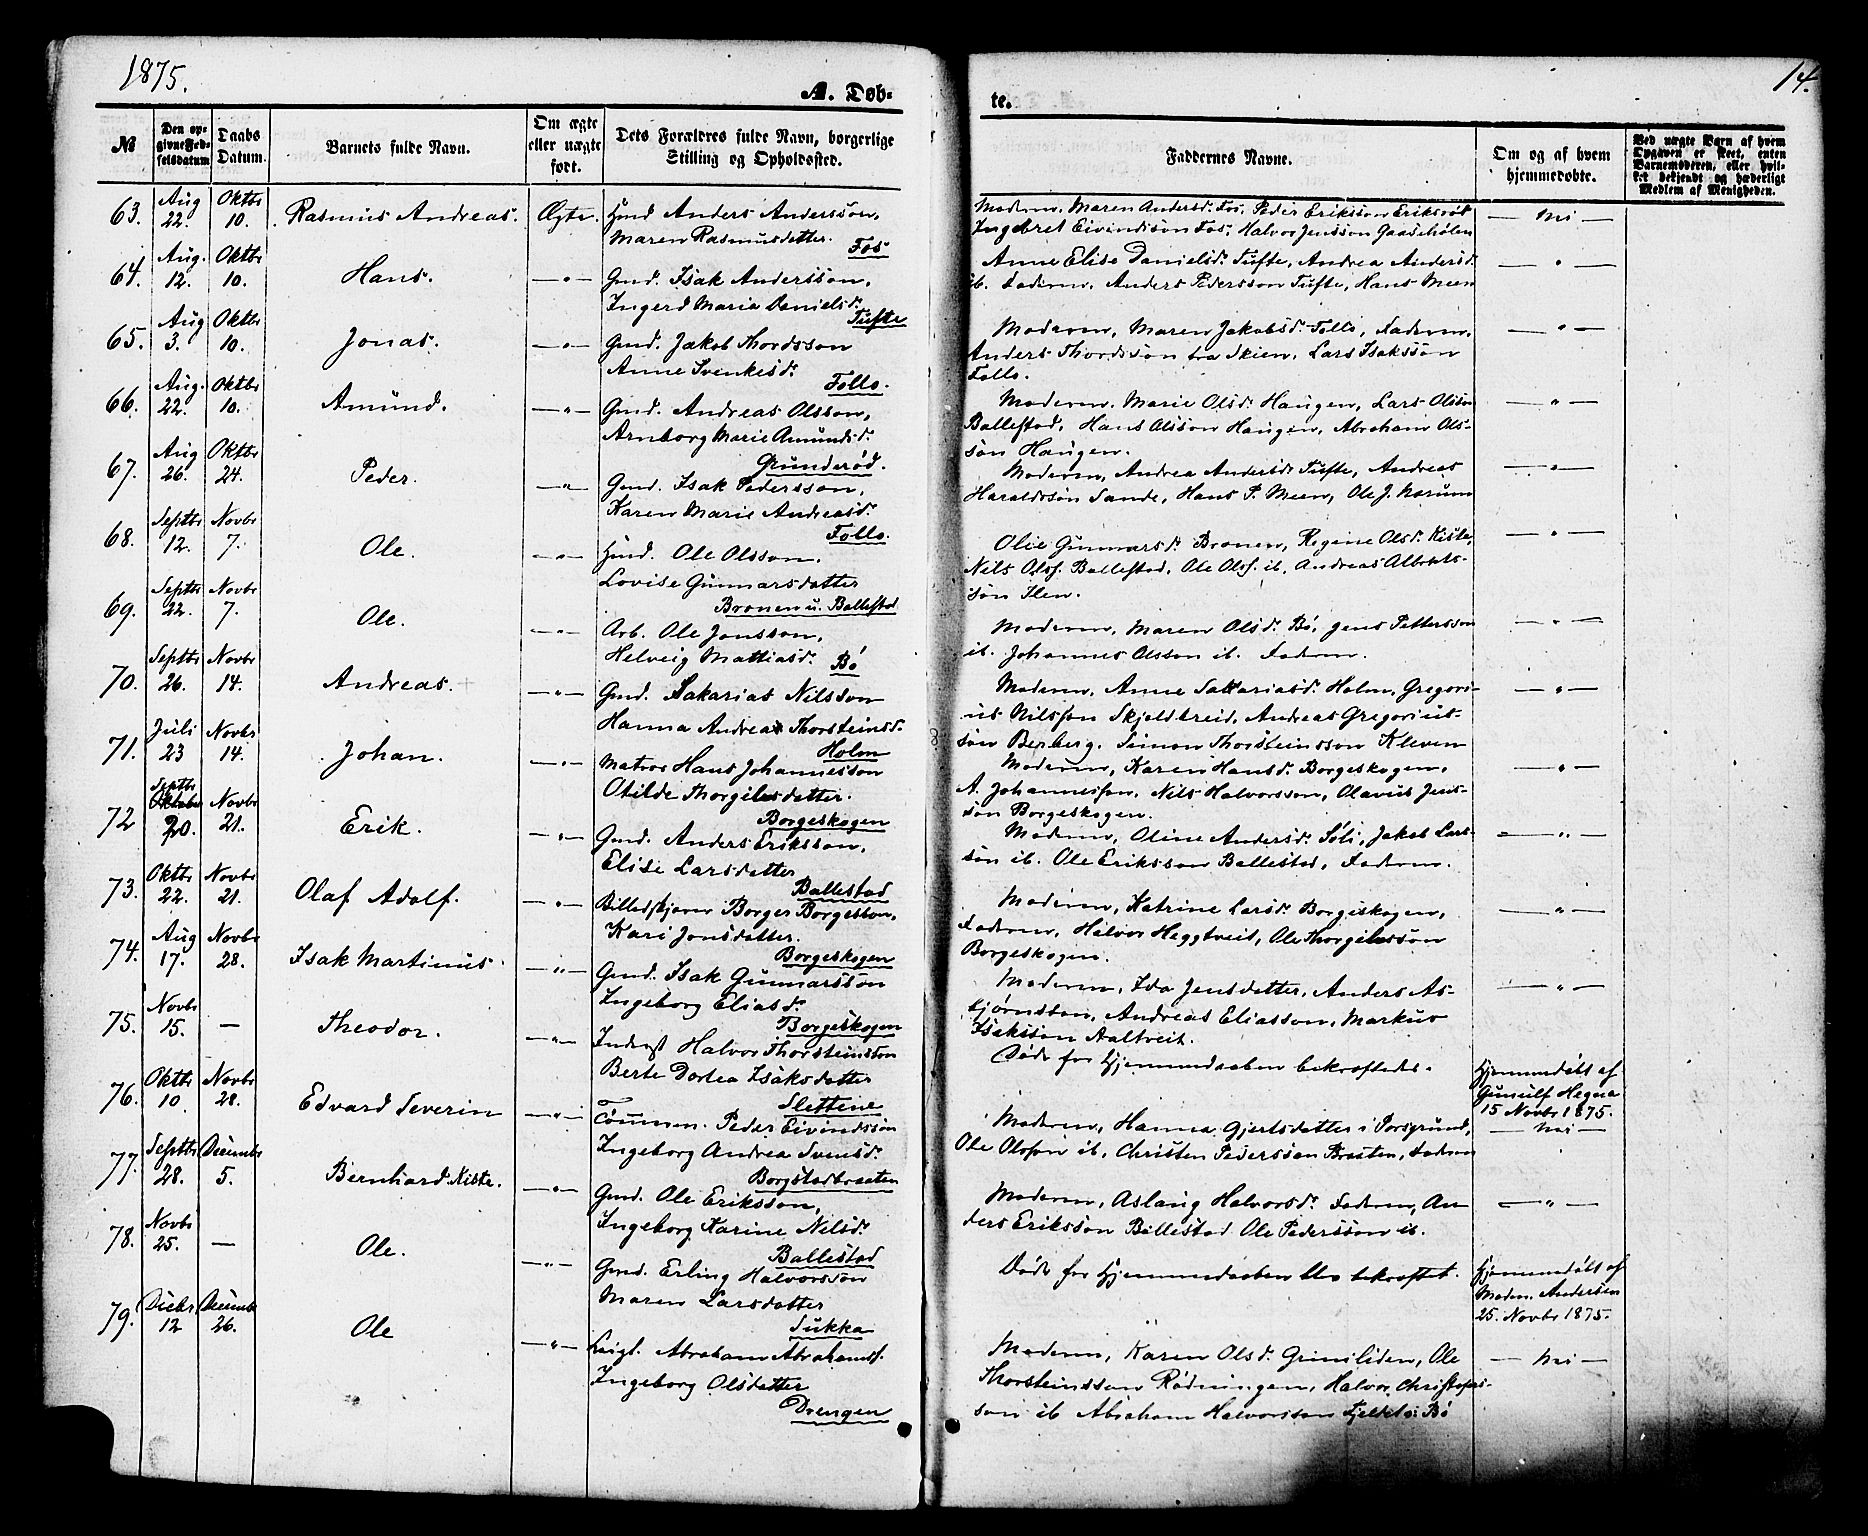 1875.
A. Døb-
te.
14.
№
Den op-
givne Fød-
selsdatum
Daabs
Datum.
Barnets fulde Navn.
Om ægte
eller uægte
født.
Dets Forældres fulde Navn, borgerlige
Stilling og Opholdssted.
Faddernes Navne.
Om og af hvem
hjemmedøbte.
Ved uægte Barn af hvem
Opgaven er skeet, enten
Barnemoderen, eller hvil-
ket bekjendt og hæderligt
Medlem af Menigheden.
63. Aug 22. Oktbr 10. Rasmus Andreas. Ægte. Hmd Anders Andersson,
Maren Rasmusdatter.
Fos
Moderen, Maren Andersd. Fos, Peder Eriksson Eriksrød
Ingebret Eivindsson Fos, Halvor Jensson Gaaseholen
— Nei —
64. Aug. 12. Oktbr 10. Hans. — " — Gmd. Isak Andersson,
Ingerd Maria Daniels d.
Tufte
Anne Elise Danielsd. Tufte, Andrea Andersd.
ib. Faderen, Anders Pedersson Tufte, Hans Meen
— " —
65. Aug 3. Oktbr 10. Jonas. — " — Gmd. Jakob Thordsson
Anne Svenkesd.
Follo.
Moderen, Maren Jakobsd. Follo, Faderen,
Anders Thordsson fra Skien, Lars Isaksson
Follo.
— " —
66. Aug. 22. Oktbr 10. Amund. — " — Gmd. Andreas Olsson,
Arnborg Marie Amundsd.
Grunderød.
Moderen. Marie Olsd. Haugen, Lars Olsson
Ballestad, Hans Olsson Haugen, Abraham Ols-
son Haugen.
— " —
67. Aug 26. Oktbr 24. Peder. — " — Gmd. Isak Pedersson,
Karen Marie Andreasd.
Follo.
Moderen, Andrea Andersd. Tufte, Andreas
Haraldsson Sande, Hans P. Meen, Ole J. Narum
— " —
68. Septbr 12. Novbr 7. Ole. — " — Hmd. Ole Olsson.
Lovise Gunnarsdatter
Bronen u. Ballestad
Olie Gunnarsd. Bronen, Regine Olsd. Kiste,
Nils Olss. Ballestad, Ole Olss. ib, Andreas Albrets-
son Ilen.
— " —
69. Septbr 22. Novbr 7. Ole. — " — Arb. Ole Jonsson,
Helveig Mattiasd.
Bø
Moderen, Maren Olsd. Bø, Jens Pettersson
ib. Johannes Olsson ib. Faderen.
— " —
70. Septbr 26. Novbr 14. Andreas. — " — Gmd. Sakarias Nilsson
Hanna Andrea Thorsteinsd.
Holm
Moderen, Anne Sakariasd. Holm, Gregori-
us Nilsson Skjeldbreid, Andreas Gregorius-
son Berberg. Simon Thorsteinsson Kleven
— " —
71. Juli 23 Novbr 14. Johan. — " — Matros Hans Johannesson
Otilde Thorgilsdatter.
Borgeskogen
Moderen, Karen Hansd. Borgeskogen,
A. Johannesson, Nils Halvorsson, Olavus Jens-
son Borgeskogen.
— " —
72 Septbr 20. Novbr 21. Erik. — " — Gmd. Anders Eriksson,
Elise Larsdatter
Ballestad
Moderen, Oline Andersd. Søli, Jakob Lars-
son ib. Ole Eriksson Ballestad, Faderen.
— " —
73. Oktbr 22. Novbr 21. Olaf Adolf. — " — Billedskjærer Borger Borgesson,
Kari Jonsdatter.
Borgeskogen
Moderen, Katrine Larsd. Borgeskogen,
Faderen, Halvor Heggtveit, Ole Thorgilsson
Borgeskogen.
— " —
74. Aug 17. Novbr 28. Isak Martinus. — " — Gmd. Isak Gunnarsson
Ingeborg Eliasd.
Borgeskogen
Moderen, Ida Jensdatter, Anders As-
bjørnsson, Andreas Eliasson, Markus
Isaksson Aaltveit.
— " —
75. Novbr 15. — Theodor. — " — Inderst Halvor Thorsteinsson
Berte Dortea Isaksdatter
Slettene
Døde før Hjemmedaaben bekræftedes.
Hjemmedøbt af
Gunulf Hegna
15 Novbr 1875.
76. Oktbr 10. Novbr 28. Edvard Severin — " — Tømmerm. Peder Eivindsson
Ingeborg Andrea Svensd.
Borgestadbraaten
Moderen, Hanna Gjertsdatter i Porsgrund,
Ole Olsson ib, Christen Pedersson Braaten, Faderen
— Nei —
77. Septbr 28. Decembr 5. Bernhard Kiste. — " — Gmd. Ole Eriksson,
Ingeborg Karine Nilsd.
Ballestad
Moderen, Aslaug Halvorsd. Faderen, An
ders Eriksson Ballestad Ole Pedersson ib.
— " —
78. Novbr 25. — Ole. — " — Gmd. Erling Halvorsson
Maren Larsdatter
Sukka
Døde før Hjemmedaaben blev bekræftet.
Hjemmedøbt af
Madm. Andersen
25. Novbr 1875.
79. Decbr 12 Decembr 26. Ole — " — Leigl. Abraham Abrahamss.
Ingeborg Olsdatter
Drengen
Moderen, Karen Olsd. Griniliden, Ole
Thorsteinsson Rødningen, Halvor Christofers-
son ib Abraham Halvorsson Fjeldet i Bø
— Nei —